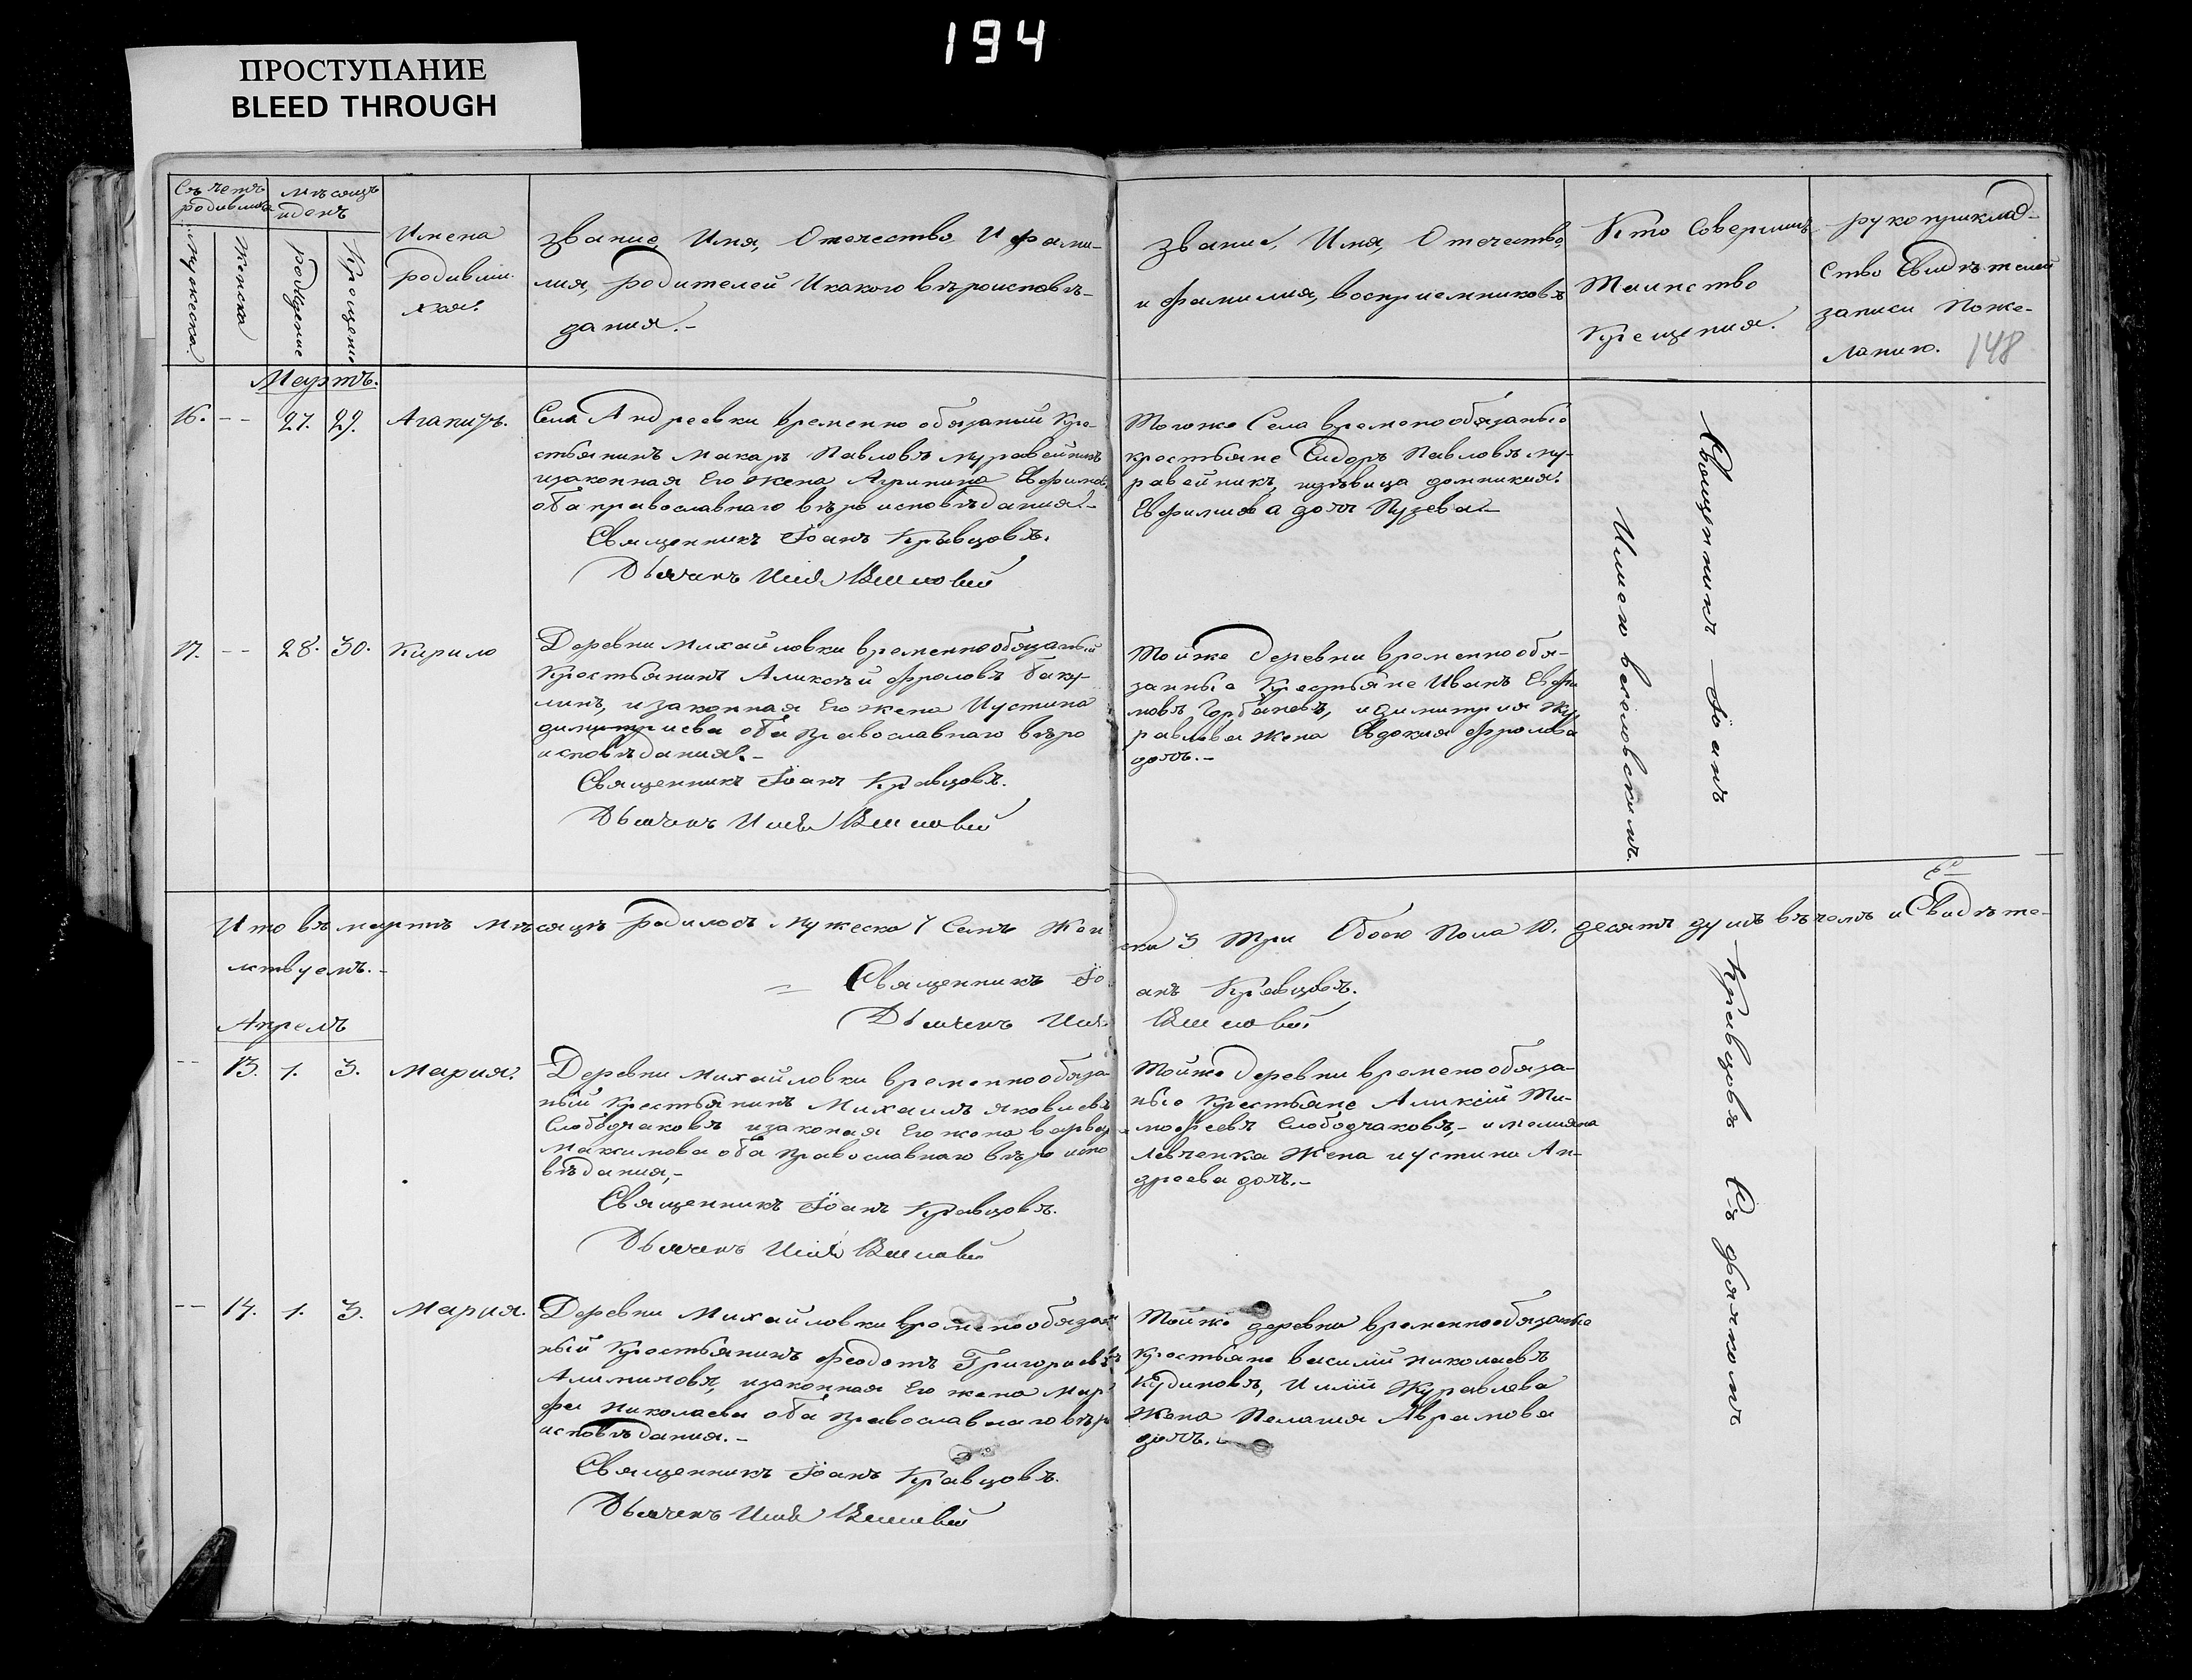 194
ПРОСТУПАНИЕ
BLEED THROUGH
Счетъ родившихся
Мужеска.
Женска
мѣсяцъ и день
рожденіе
Крещеніе
Имена
родивши
хся.
Званіе, Имя, Отечество И фами-
лия, родителей Икакого вѣроисповѣ-
дания.-
Званіе, Имя, Отечество,
и фамилия, восприемниковъ
Кто Совершилъ
Таинство
Крещения.
рукоприклад-
ство Свидѣтелей
записи Поже-
ланию.
148
Мартъ.
16. -- 27. 29. Агапитъ.
Села Андреевки временно обязаний Кре-
стьянинъ Макаръ Павловъ Муравейникъ
изаконная Его жена Агрипина Евфимова
оба православнаго вѣро исповѣдания.-
Священникъ Іоанъ Кравцовъ.
Дьячекъ Илія
Тогоже Села временообязаные
крестьяне Сидоръ Павловъ му-
равейникъ, идѣвица домникия.
Евфимова дочь Пузева.-
17. -- 28. 30. Кирило
Деревни Михайловки временнообязаный
Крестьянинъ Аликсѣй Фроловъ Баку-
линъ, изаконная Его жена Иустина
димитриева оба Православнаго вѣро
исповѣдания.-
Священникъ Іоанъ Кравцовъ.
Дьячекъ Илія
Тойже деревни временнообя-
занные Крестьяне Иванъ Евфи
мовъ Горбаневъ, идимитрия Жу
равлева жена Евдокия Фролова
дочь.-
Священникъ Іоанъ Кравцовъ Съ дьячкомъ
Илиею
Итого въ мартѣ мѣсяцѣ родилось Мужеска 7 Семь Жен
ска 3 Три Обоего Пола 10. десять душъ въ чемъ и Свидѣте-
льствуемъ.-
Священникъ Іо
анъ Кравцовъ.
Дьячекъ Илія
Апрель
-- 13. 1. 3. Мария.
Деревни Михайловки временнообяза
ный Крестьянинъ Михаилъ Яковлевъ
Слободчаковъ изаконая Его жена варвар
Максимова оба Православнаго вѣро испо
вѣдания,-
Священникъ Іоанъ Кравцовъ.
Дьячекъ Илія
Тойже деревни временообяза-
ные Крестьяне Аликсій Ти-
мофеевъ Слободчаковъ,- имелияна
Левченка Жена иустина Ан-
дреева дочь.-
-- 14. 1. 3. Мария.
Деревни Михайловки временообяза
ный Крестьянинъ Феодотъ Григориевъ
Алимповъ, изаконная Его жена Мар
фа Николаева оба Православнаго вѣро
исповѣдания.-
Священникъ Іоанъ Кравцовъ.
Дьячекъ Илія
Тойже деревни временнообязание
крестьяне василій николаевъ
Кудиновъ, И илии Журавлева
Жена Пелагия Аврамова
дочь.-